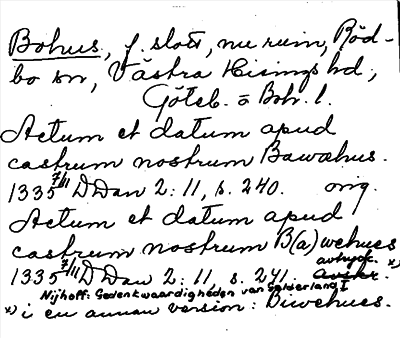 Bohus, f. slott, nu ruin, Röd-
bo sn, Västra Hisings hd,
Göteb. o Boh. l.
Actum et datum apud
castrum nostrum Bawahus.
1335 7/11 D Dan 2: 11, s. 240. orig.
Actum et datum apud
castrum nostrum B(a)wehues
1335 7/11 D Dan 2: 11. s. 241. avtryck. x)
Nijhoff: Gedenkwaardigheden van Gelderland I
x) i en annan version: Biwehues.